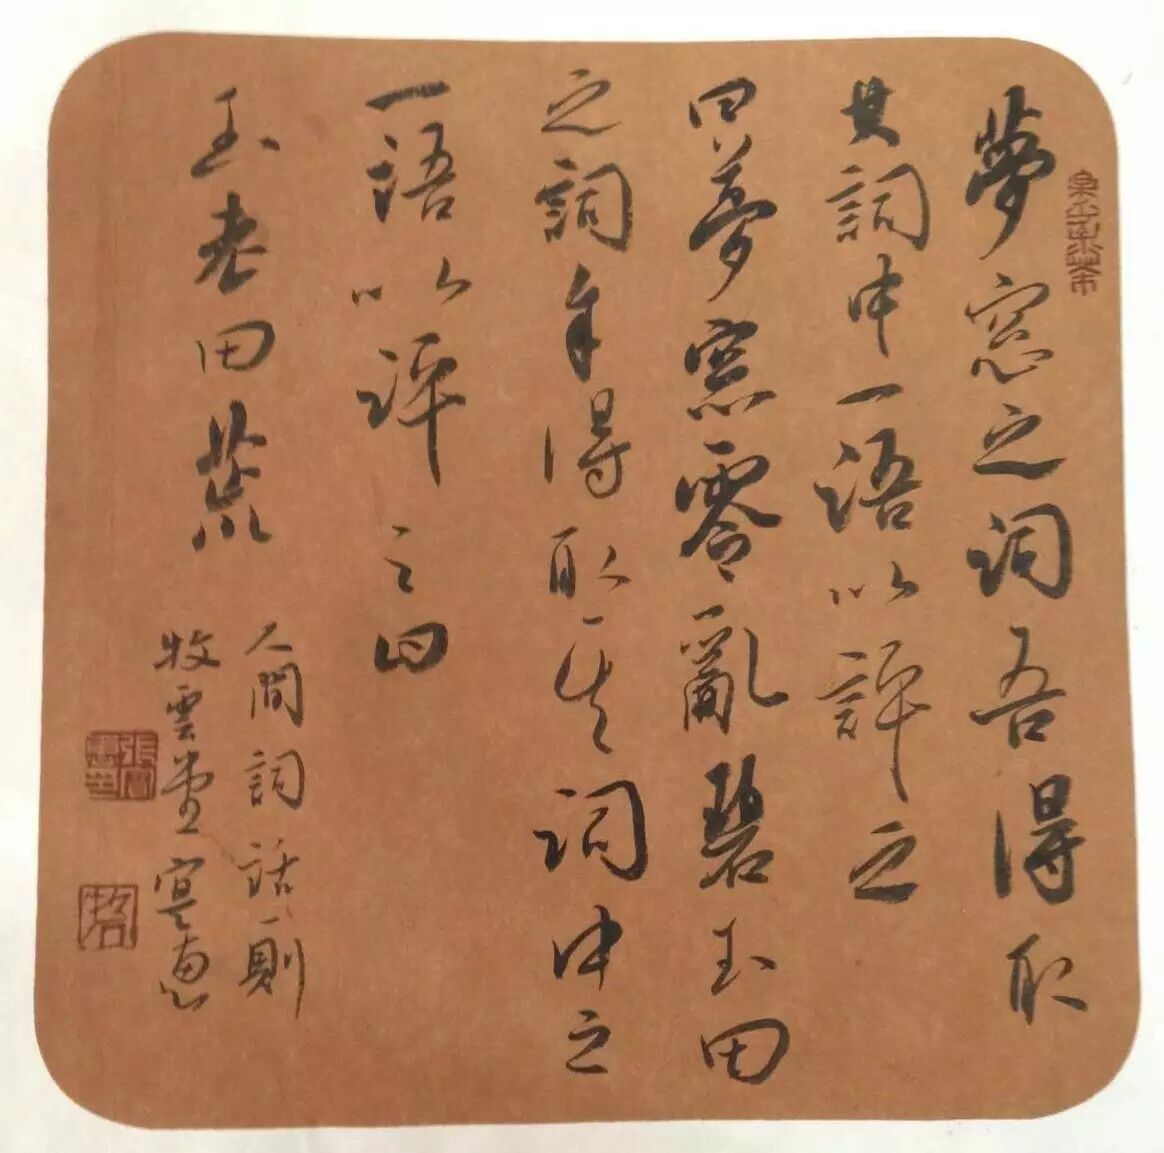 夢窓之詞吾得取
其詞中一語以評之
曰夢窓零亂碧玉田
之詞余得取其詞中之
一語以評之曰
玉老田荒
人間詞話一則
牧雲堂